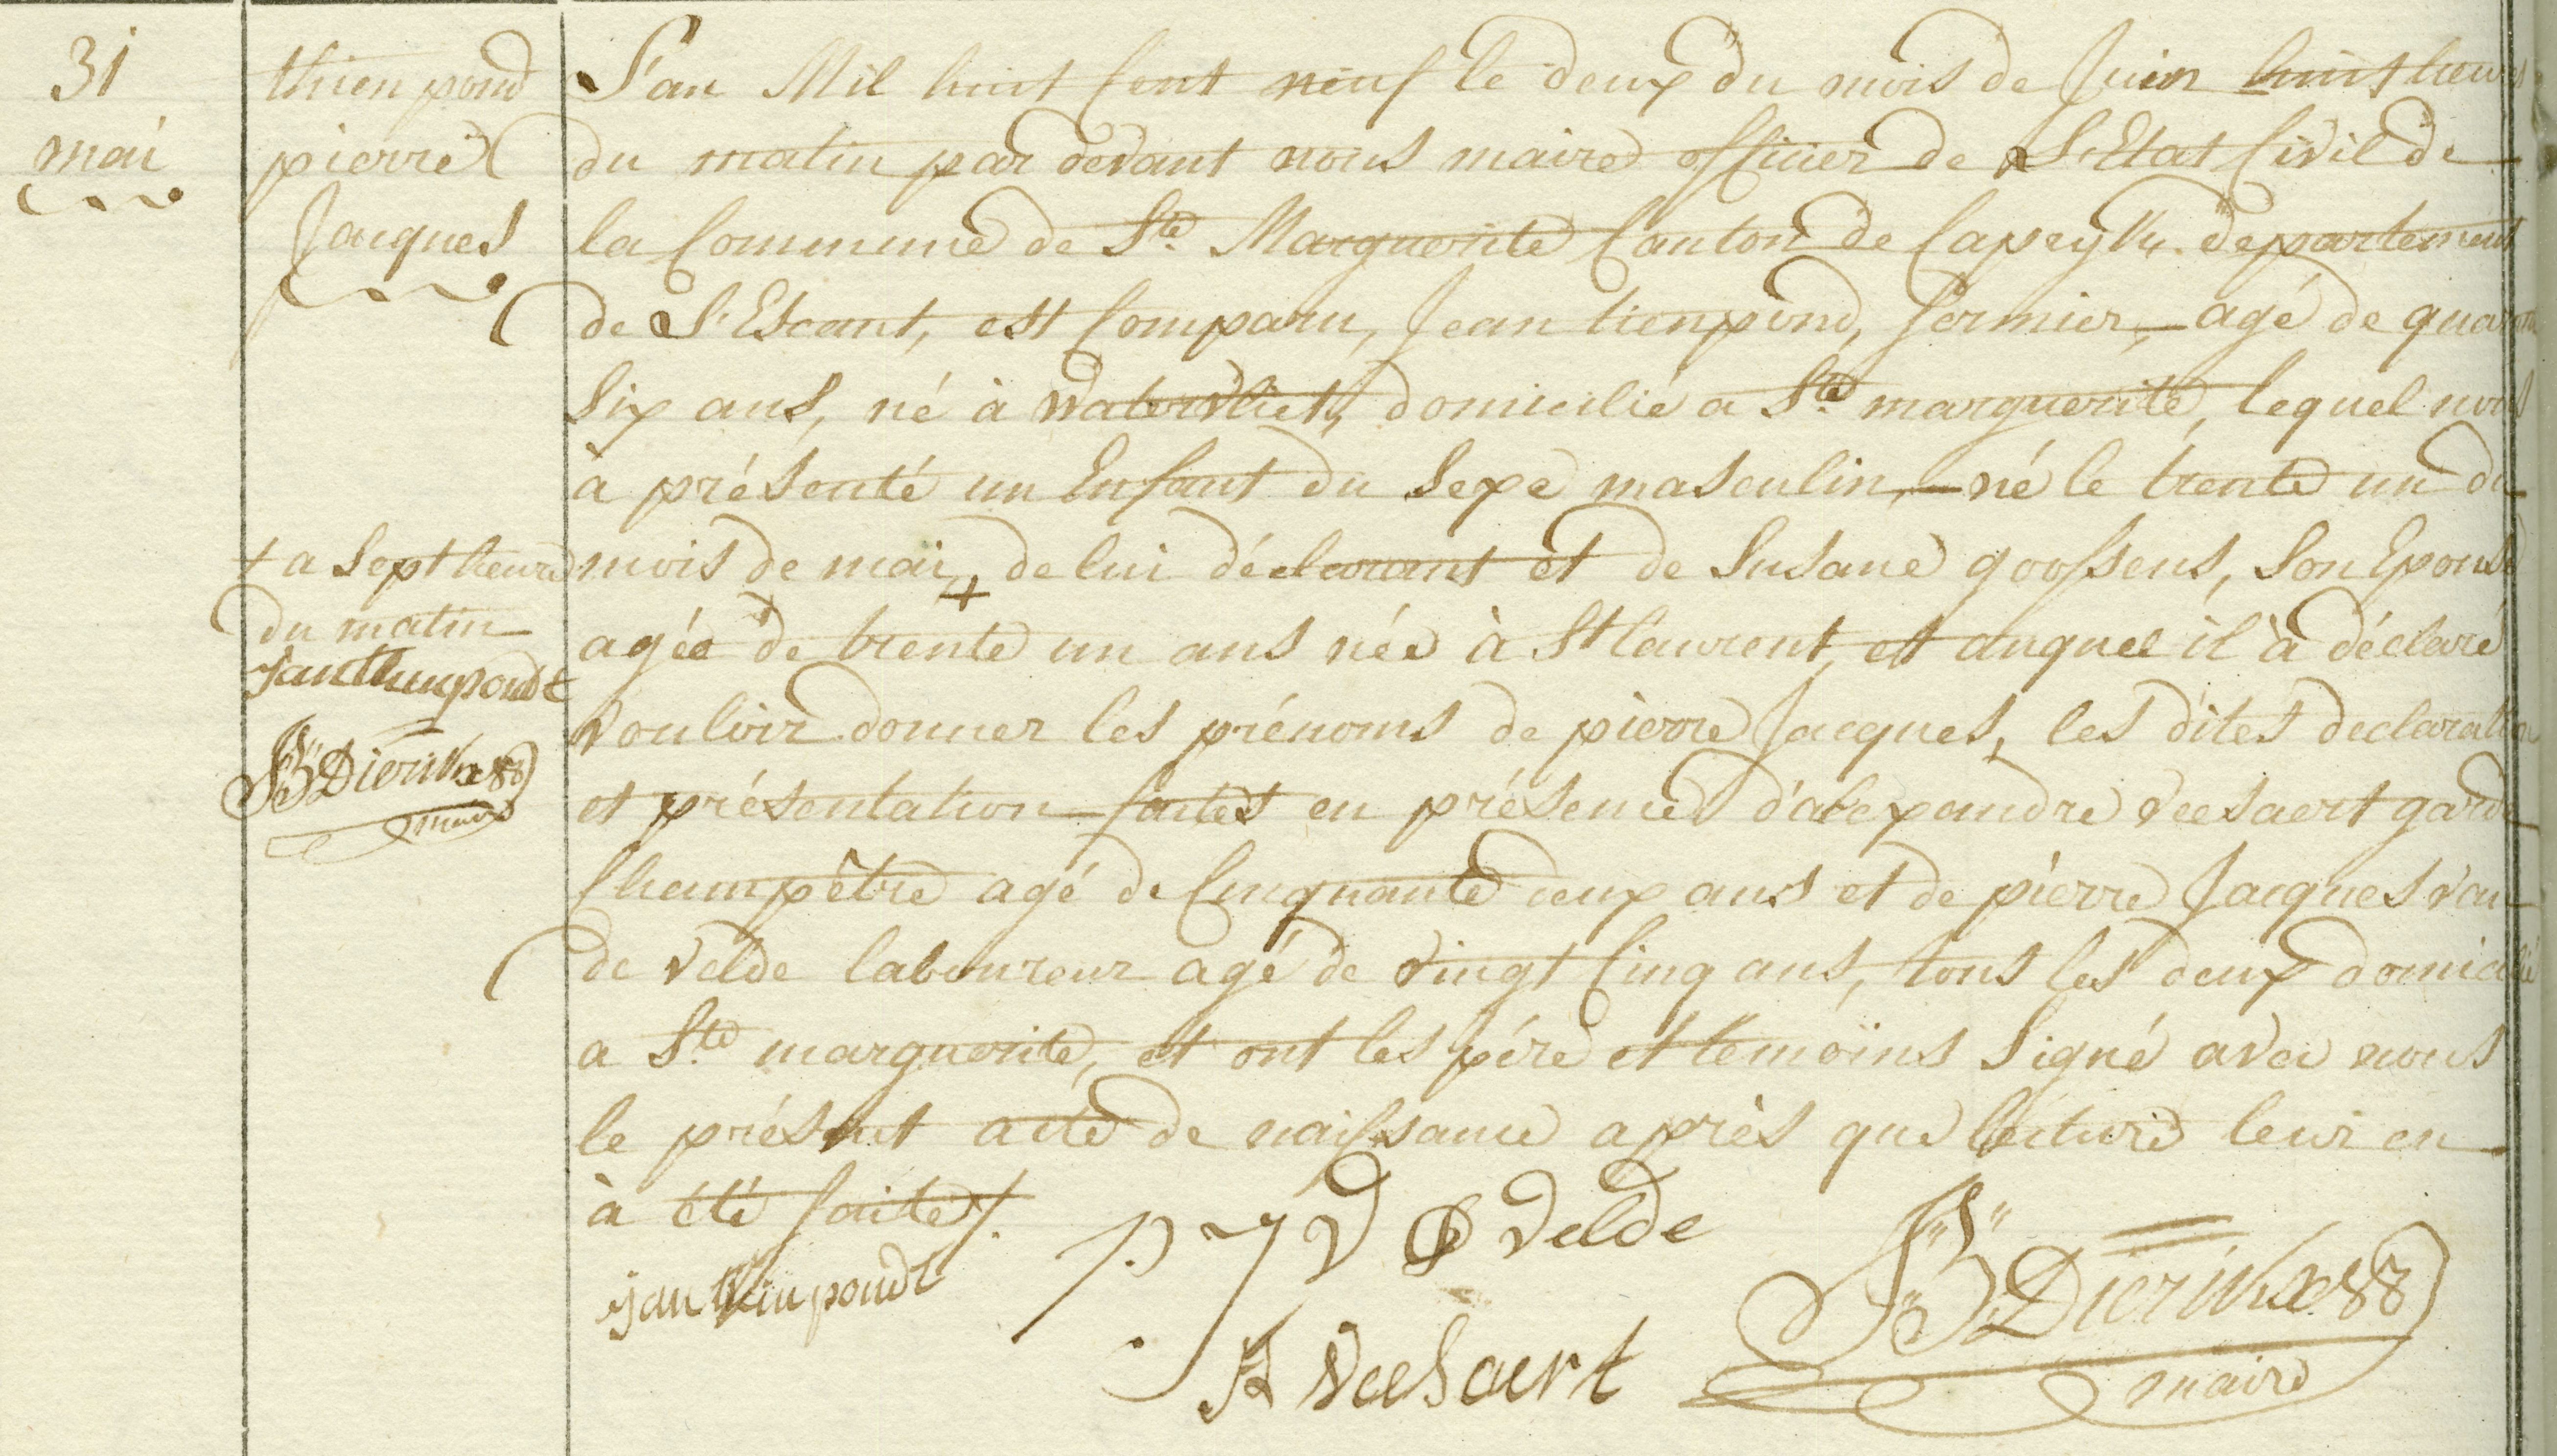 31
mai
thienpond
pierre
Jacques
L'an Mil huit Cent neuf le deux du mois de Juin huit heures
du matin par devant nous maire officier de L'Etat Civil de
la Commune de Ste. Marguerite Canton de Capryk. departement
de L'Escaut, est Comparu, Jean tienpond, fermier, agé de quarante
Six ans, né à Watervliet, domicilié a Ste marguerite, lequel nous
à présenté un Enfant du Sexe masculin, né le trente un du
mois de mai + de lui déclarant et de Susane goossens, Son Epouse
agée de trente un ans née à St laurent, et auquel il à déclaré
Vouloir donner les prénoms de pierre Jacques, les dites declaration
et présentation faites en présence d'alexandre veesaert garde
Champêtre agé de Cinquante deux ans et de pierre Jacques van
de Velde laboureur agé de vingt Cinq ans, tous les deux domicilié
a Ste marguerite, et ont les pére et temoins Signé avec nous
le présent acte de naissance après que lecture leur en
à été faite ./.
+ a Sept heures
du matin
jan thienpondt
JB Dierikx
maire
P J V D Velde
jan thienpondt
JB Dierikx
A Veesaert
maire